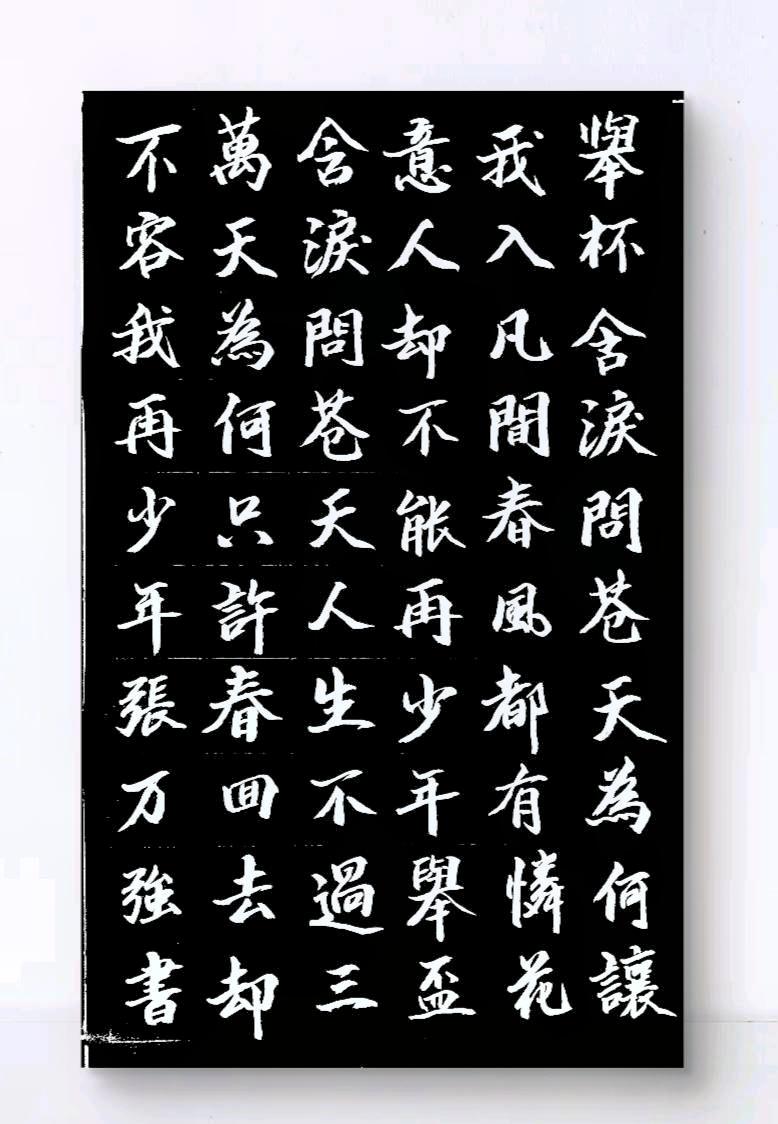 舉杯含淚問苍天為何讓
我入凡間春風都有憐花
意人却不能再少年舉盃
含淚問苍天人生不過三
萬天為何只許春回去却
不容我再少年張万強書